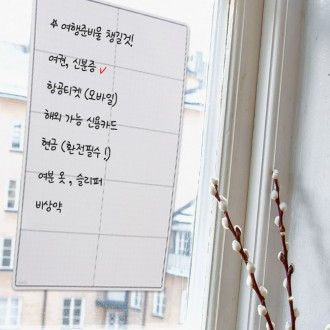 ☆ 여행준비물 챙길것!
여권, 신분증 ✓
항공티켓 (모바일)
해외 가능 신용카드
현금 (환전필수!)
여분 옷, 슬리퍼
비상약